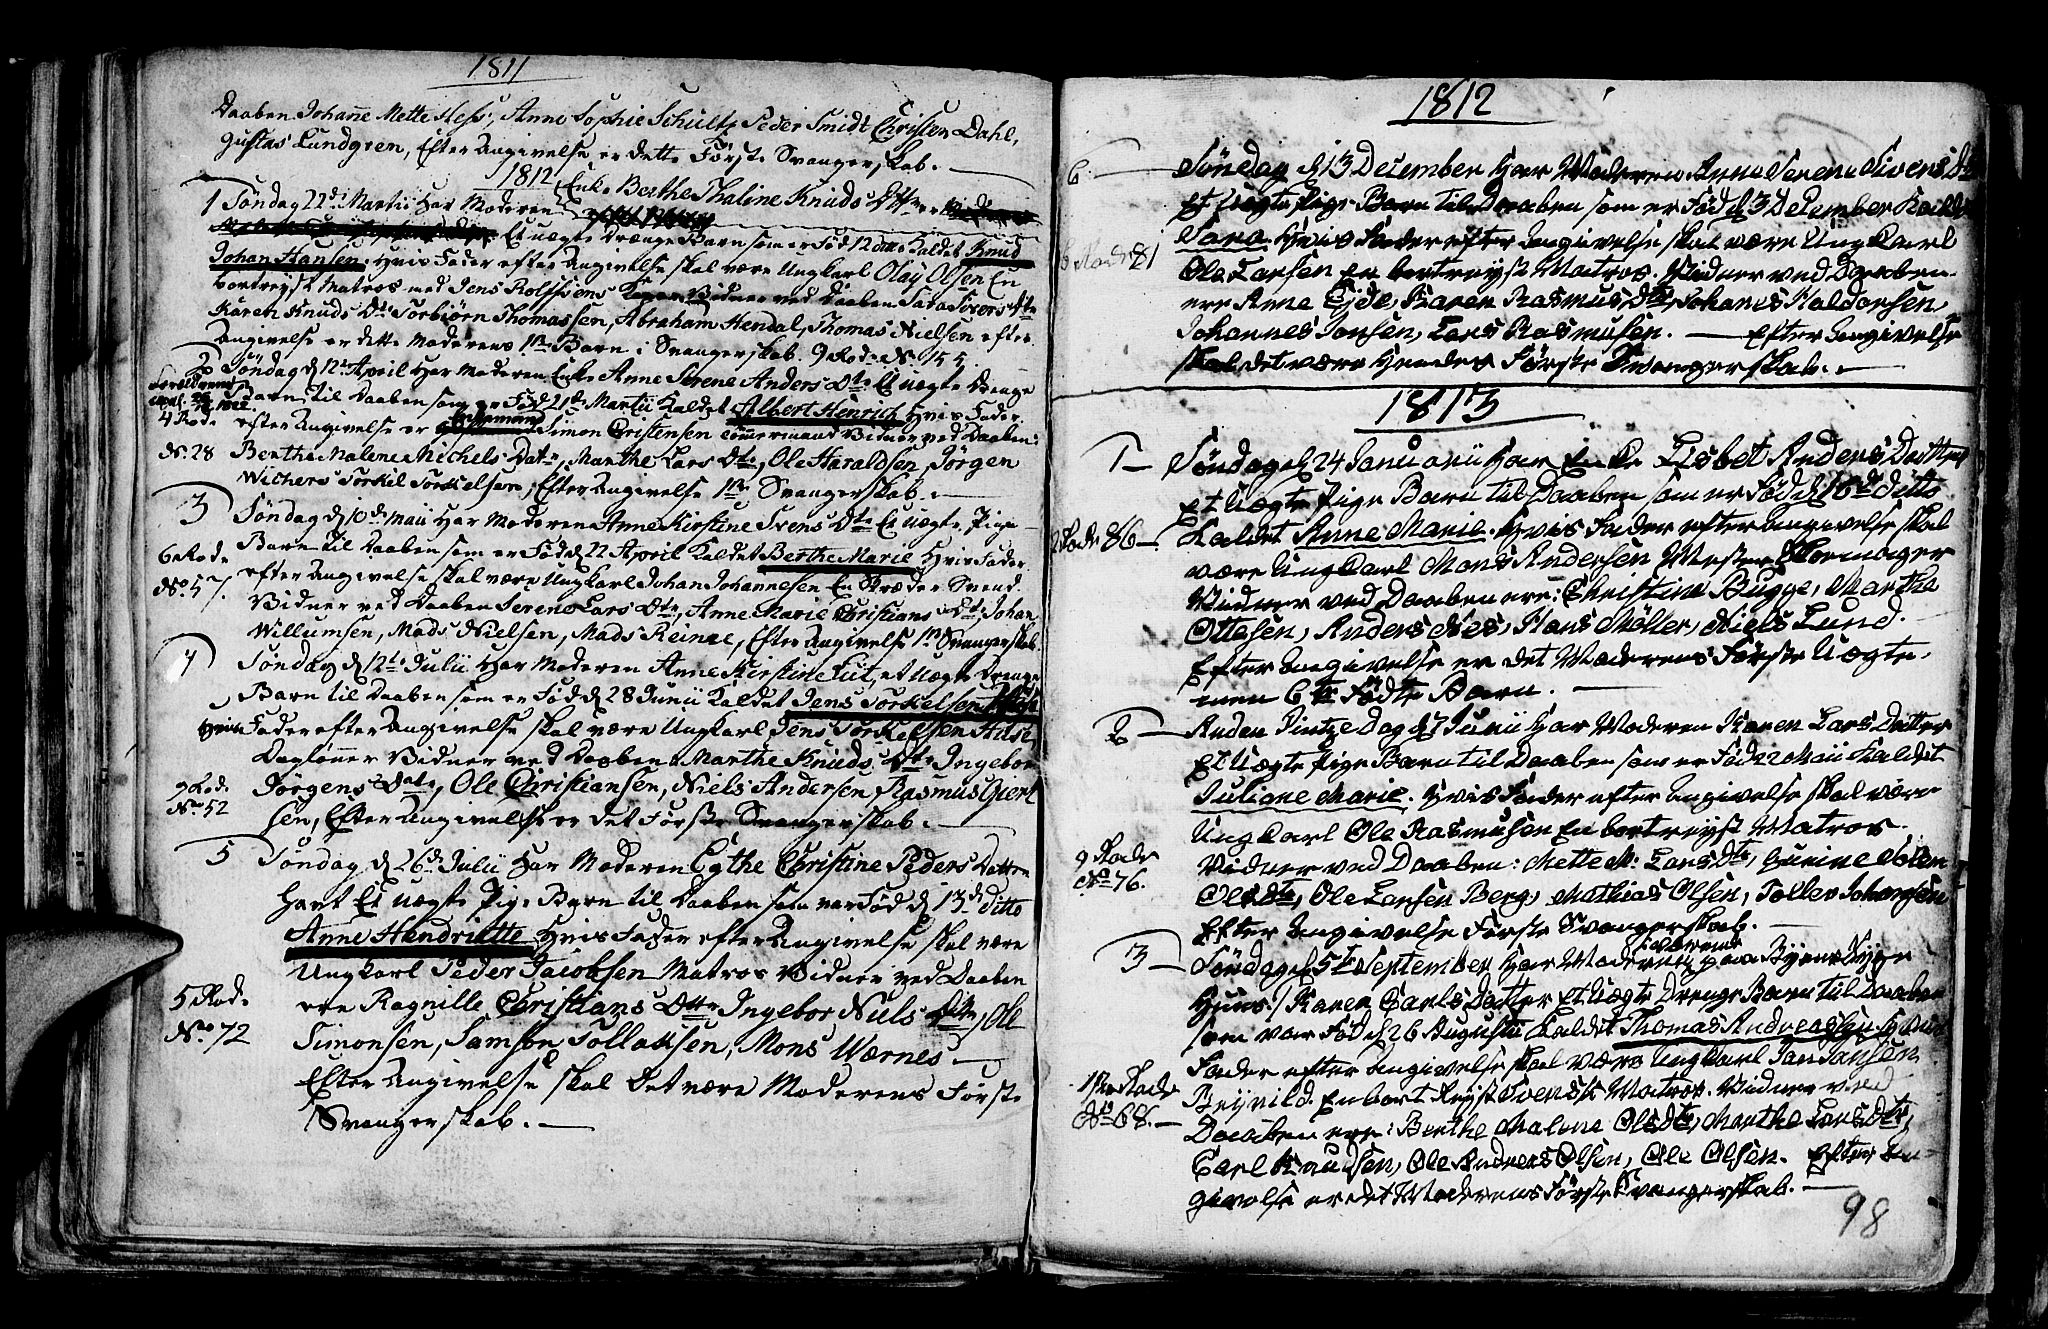 1811
Daaben Johane Mette Hess, Anne Sophie Schultz Peder Smidt Christen Dahl,
Gustas Lundgren, Efter Angivelse er dette Første Svangerskab.
1812
1 Søndag 22de Martii Har Moderen Enke Berthe Thaline Knuds Dttr
Et uægte Drænge Barn som er Fød 12 ditto Kaldet Knud
Johan Hansen. Hvis Fader efter Angivelse skal være Ungkarl Olay Olsen En
bortreyst Matros med Jens Rolfsens Vidner ved Daaben
Karen Knuds Dtr Torbiørn Thomassen, Abraham Hendal, Thomas Nielsen efter
Angivelse er dette Moderens 1ste Barn i Svangerskab. 9 Rode No 155.
2 Søndag d 12te April Har Moderen Enke Anne Serene Anders Dtr Et uægte Drænge
Barn til Daaben som er Fød 21de Martii Kaldet Albert Henrich Hvis Fader
4 Rode
efter Angivelse er Simon Christensen Tømmermand Vidner ved Daaben
No. 28
Berthe Malene Michels Datr, Marthe Lars Dtr, Ole Haraldsen Jørgen
Wichers Torkil Torkelsen, Efter Angivelse 1ste Svangerskab.
3 Søndag d 10de Maii Har Moderen Anne Kirstine Svens Dtr Et uægte Pige
Barn til Daaben som er Fød d 22 April Kaldet Berthe Marie Hvis Fader
6 Rode
No. 57.
efter Angivelse skal være Ungkarl Johan Johannesen En Skræder Svend.
Vidner ved Daaben Serene Lars Dtr, Anne Marie Christians Dtr Johan
Willumsen, Mads Nielsen, Mads Reinae, Efter Angivelse 1ste Svangerskab.
4 Søndag d 12te Julii Har Moderen Anne Kirstine Tut, et uægte Drenge
Barn til Daaben som er Fød d 28 Junii Kaldet Jens Torkelsen
Hvis Fader efter Angivelse skal være Ungkarl Jens Torkelsen Huse
Dagløner Vidner ved Daaben Marthe Knuds Dtr Ingebor
9 Rode
No. 52
Jørgens Datr, Ole Christiansen, Niels Andersen, Rasmus Giert
sen, Efter Angivelse er det Første Svangerskab.
5 Søndag d 26de Julii Har Moderen Egthe Christine Peders Dattr
havt Et uægte Pige Barn til Daaben som var Fød d 13de ditto
Anne Hendriette Hvis Fader efter Angivelse skal være
Ungkarl Peder Jacobsen Matros Vidner ved Daaben
5 Rode
No. 72
ere Ragnille Christians Dttr Ingebor Niels Dtr, Ole
Simonsen, Samson Tollaksen, Mons Wærnes.
Efter Angivelse skal Det være Moderens Første
Svangerskab.
1812
6 Søndag d 13 December Har Moderen Anne Serene Sivers Dtr
Et Uægte Pige Barn til Daaben som er Fød d 3 December Kaldet
Sara. Hvis Fader efter Angivelse skal være Ungkarl
Rode 81
Ole Larsen En bortreyst Matros. Vidner ved Daaben
ere Anne Eide, Karen Rasmus Dtr, Johanes Haldorsen,
Johannes Jonsen, Lars Rasmusen. Efter Angivelse
skal det være Hendes Første Svangerskab.
1813
1 Søndag d 24 Januarii Har Enke Lisbet Anders Datter
Et Uægte Pige Barn til Daaben som er Fød d 16de ditto
Rode 86
Kaldet Anne Marie. Hvis Fader efter Angivelse skal
være Ungkarl Mons Andersen Mester Skomager
Vidner ved Daaben ere: Christine Bugge, Martha
Ottesen, Anders Nes, Hans Møller, Niels Lund.
Efter Angivelse er det Moderens Første Uægte,
men 6te Fødte Barn.
2 Anden Pintze Dag d 7 Junii Har Moderen Karen Lars Datter
Et Uægte Pige Barn til Daaben som er Fød 22 Maii Kaldet
Juliane Marie. Hvis Fader efter Angivelse skal være
Ungkarl Ole Rasmusen En bortreyst Matros.
9 Rode
No 76.
Vidner ved Daaben: Mette M: Lars Dtr, Gurine
Ols Dtr, Ole Larsen Berg, Mathias Olsen, Tollev Johansen
Efter Angivelse Første Svangerskab.
3 Søndag d 5te September Har Moderen paa Byens Syge
Huus / Karen Carls Datter Et Uægte Drenge Barn til Daaben
som var Fød d 26 Augustii Kaldet Thomas Andreas Hvis
Fader efter Angivelse skal være Ungkarl Jan Jansen
1ste Rode
No 68.
Beynild. En bort Reyst Svensk Matros. Vidner ved
Daaben ere: Berthe Malene Ols Dtr, Marthe Lars Dtr,
Carl Knudsen, Ole Andreas Olsen, Ole Olsen. Efter An-
givelse er det Moderens Første Svangerskab.
98